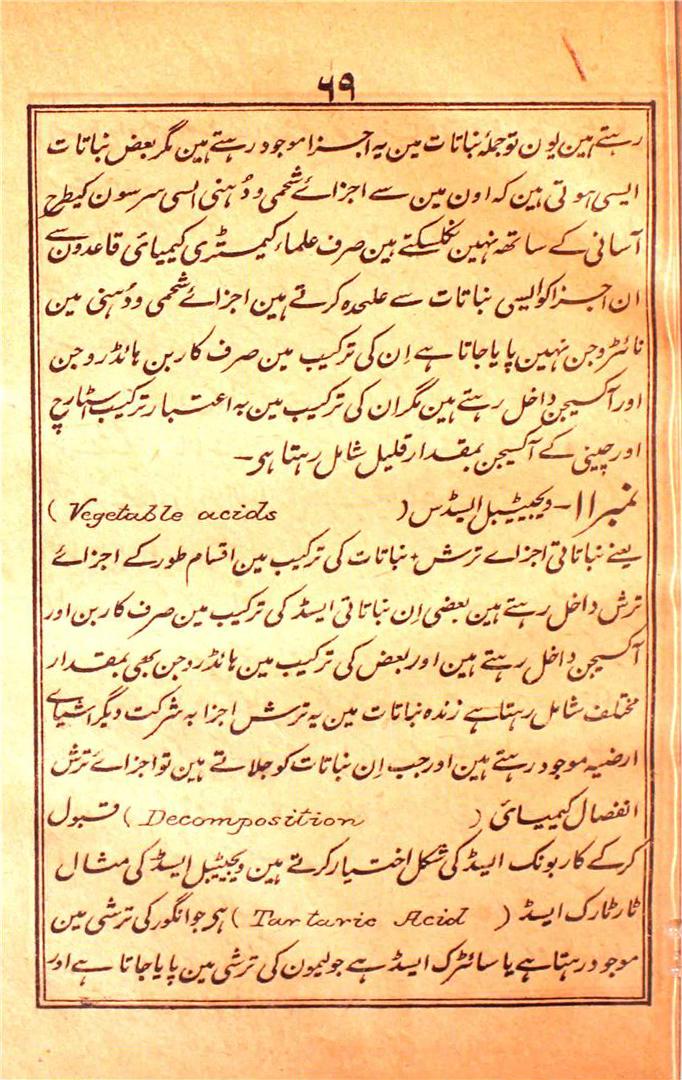 ۶۹
رہتے ہین یون تو جملۂ نباتات مین یہ اجزا موجود رہتے ہین مگر بعض نباتات
ایسی ہوتی ہین کہ اون مین سے اجزاے شحمی و دُہنی السی سرسون کیطرح
آسانی کے ساتھ نہین نکلسکتے ہین صرف علماء کیمسٹری کیمیائی قاعدون سے
ان اجزا کو ایسی نباتات سے علیحدہ کرتے ہین اجزاے شحمی و دُہنی مین
نائٹروجن نہین پایا جاتا ہے اِن کی ترکیب مین صرف کاربن ہائڈروجن
اور آکسیجن داخل رہتے ہین مگر ان کی ترکیب مین بہ اعتبار ترکیب اسٹارچ
اور چینی کے آکسیجن بمقدار قلیل شامل رہتا ہی۔
نمبر ۱۱۔ ویجیٹیبل ایسڈس (Vegetable acids)
یعنے نباتاتی اجزاے ترش۔ نباتات کی ترکیب مین اقسام طور کے اجزاے
ترش داخل رہتے ہین بعضی اِن نباتاتی ایسڈ کی ترکیب مین صرف کاربن اور
آکسیجن داخل رہتے ہین اور بعض کی ترکیب مین ہائڈروجن بھی بمقدار
مختلف شامل رہتا ہے زندہ نباتات مین یہ ترش اجزا بہ شرکت دیگر اشیاے
ارضیہ موجود رہتے ہین اور جب اِن نباتات کو جلاتے ہین تو اجزاے ترش
انفصال کیمیائی (Decomposition) قبول
کرکے کاربونک ایسڈ کی شکل اختیار کرتے ہین ویجیٹیبل ایسڈ کی مثال
ٹارٹارک ایسڈ (Tartaric Acid) ہی جو انگور کی ترشی مین
موجود رہتا ہے یا سائٹرک ایسڈ ہے جو لیمون کی ترشی مین پایا جاتا ہے اور